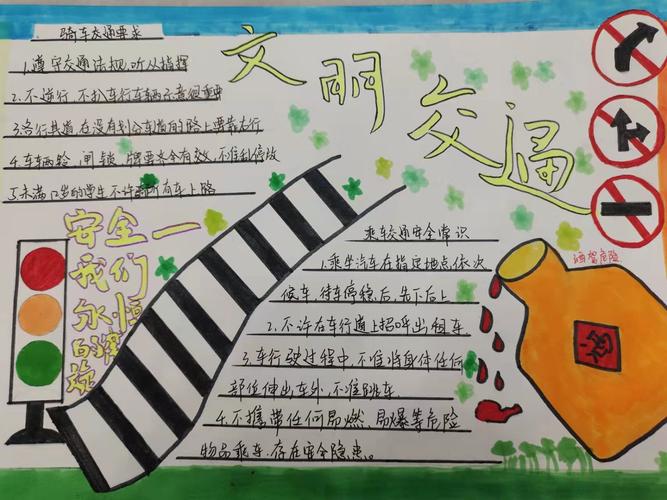 骑车交通要求
1.遵守交通法规,听从指挥
2.不逆行,不扒车行车辆示意很重
3.各行其道,在没有划分车道的路上要靠右行
4.车辆的铃、闸、锁、牌要齐全有效,不准乱停放
5.未满12岁的学生不许骑
车上路
文明交通
安全一
我们
永恒
的
旋
乘车交通安全常识
1.乘坐汽车在指定地点依次
候车,待车停稳后,先下后上
2.不许在车行道上招呼出租车
3.车行驶过程中,不准将身体任何
部位伸出车外,不准跳车
4.不携带任何易燃、易爆等危险
物品乘车,存在安全隐患。
酒驾危险